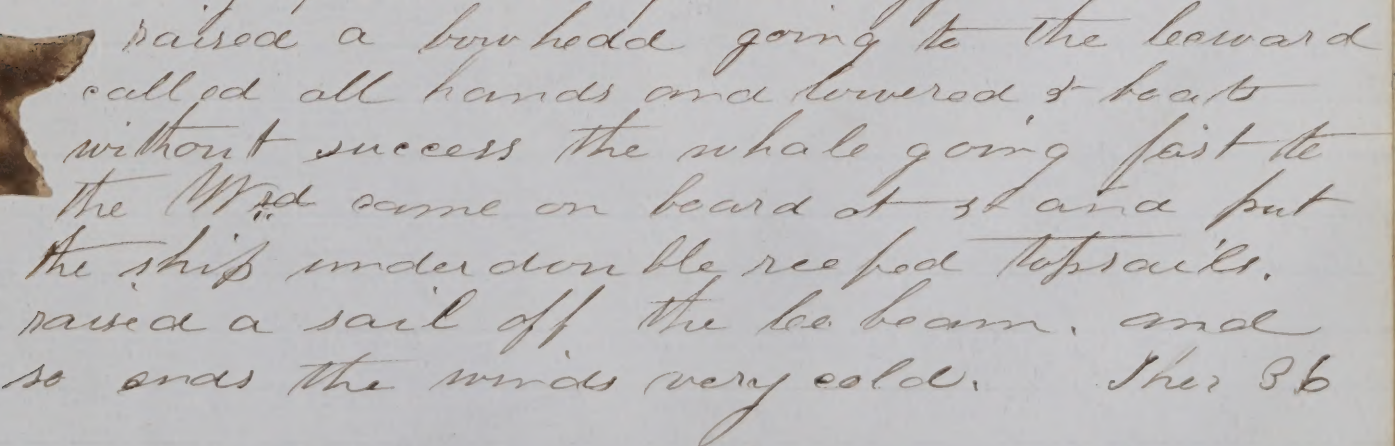 raised a bowhedd going to the leeward
called all hands and lowered boats
without success the whale going fast to
the Wrd came on board at and put
the ship under double reefed topsails.
raised a sail off the lee beam. and
so ends the winds very cold. Ther 36